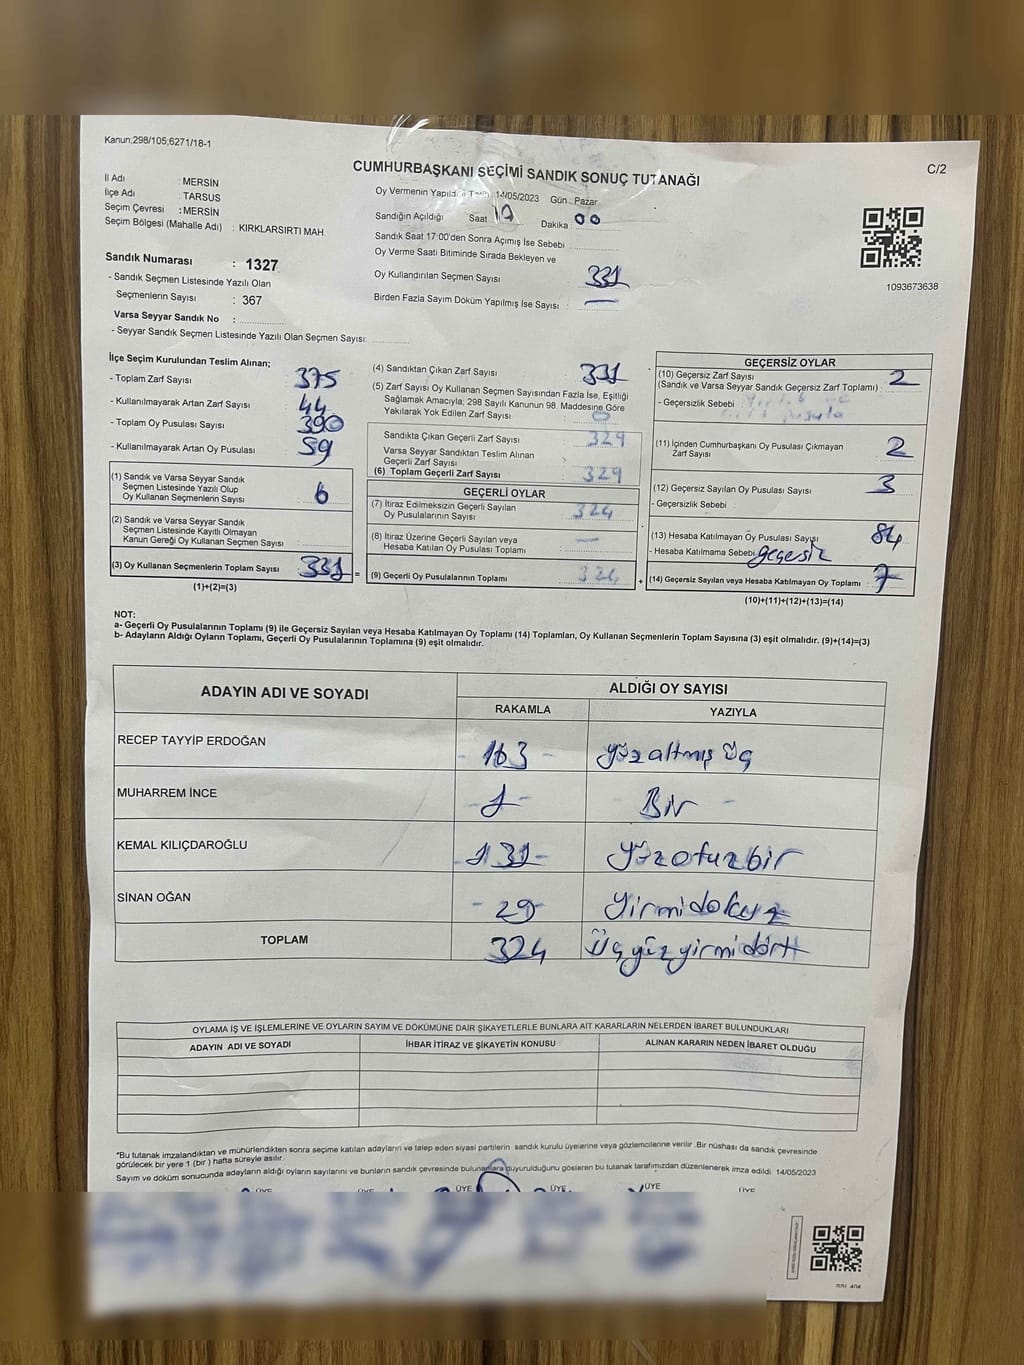 Kanun;298/105;6271/18-1
CUMHURBAŞKANI SEÇİMİ SANDIK SONUÇ TUTANAĞI
C/2
İl Adı : MERSİN
İlçe Adı : TARSUS
Seçim Çevresi : MERSİN
Seçim Bölgesi (Mahalle Adı) : KIRKLARSIRTI MAH.
Sandık Numarası : 1327
- Sandık Seçmen Listesinde Yazılı Olan
Seçmenlerin Sayısı : 367
Varsa Seyyar Sandık No :
- Seyyar Sandık Seçmen Listesinde Yazılı Olan Seçmen Sayısı:
Oy Vermenin Yapıldığı Tarih 14/05/2023 Gün : Pazar
Sandığın Açıldığı Saat Dakika 00
Sandık Saat 17:00'den Sonra Açımış İse Sebebi
Oy Verme Saati Bitiminde Sırada Bekleyen ve
Oy Kullandırılan Seçmen Sayısı 331
Birden Fazla Sayım Döküm Yapılmış İse Sayısı : —
1093673638
İlçe Seçim Kurulundan Teslim Alınan;
- Toplam Zarf Sayısı 375
- Kullanılmayarak Artan Zarf Sayısı 44
- Toplam Oy Pusulası Sayısı 390
- Kullanılmayarak Artan Oy Pusulası 59
(1) Sandık ve Varsa Seyyar Sandık
Seçmen Listesinde Yazılı Olup
Oy Kullanan Seçmenlerin Sayısı 6
(2) Sandık ve Varsa Seyyar Sandık
Seçmen Listesinde Kayıtlı Olmayan
Kanun Gereği Oy Kullanan Seçmen Sayısı :
(3) Oy Kullanan Seçmenlerin Toplam Sayısı 331 =
(1)+(2)=(3)
(4) Sandıktan Çıkan Zarf Sayısı 331
(5) Zarf Sayısı Oy Kullanan Seçmen Sayısından Fazla İse, Eşitliği
Sağlamak Amacıyla; 298 Sayılı Kanunun 98. Maddesine Göre
Yakılarak Yok Edilen Zarf Sayısı 0
Sandıkta Çıkan Geçerli Zarf Sayısı 329
Varsa Seyyar Sandıktan Teslim Alınan
Geçerli Zarf Sayısı
(6) Toplam Geçerli Zarf Sayısı : 329
GEÇERLİ OYLAR
(7) İtiraz Edilmeksizin Geçerli Sayılan
Oy Pusulalarının Sayısı : 324
(8) İtiraz Üzerine Geçerli Sayılan veya
Hesaba Katılan Oy Pusulası Toplamı : —
(9) Geçerli Oy Pusulalarının Toplamı : 324 +
GEÇERSİZ OYLAR
(10) Geçersiz Zarf Sayısı 2
(Sandık ve Varsa Seyyar Sandık Geçersiz Zarf Toplamı)
- Geçersizlik Sebebi : pusula
(11) İçinden Cumhurbaşkanı Oy Pusulası Çıkmayan
Zarf Sayısı 2
(12) Geçersiz Sayılan Oy Pusulası Sayısı 3
- Geçersizlik Sebebi :
(13) Hesaba Katılmayan Oy Pusulası Sayısı
- Hesaba Katılmama Sebebi geçersiz
(14) Geçersiz Sayılan veya Hesaba Katılmayan Oy Toplamı : 7
(10)+(11)+(12)+(13)=(14)
NOT:
a- Geçerli Oy Pusulalarının Toplamı (9) ile Geçersiz Sayılan veya Hesaba Katılmayan Oy Toplamı (14) Toplamları, Oy Kullanan Seçmenlerin Toplam Sayısına (3) eşit olmalıdır. (9)+(14)=(3)
b- Adayların Aldığı Oyların Toplamı, Geçerli Oy Pusulalarının Toplamına (9) eşit olmalıdır.
ADAYIN ADI VE SOYADI ALDIĞI OY SAYISI
RAKAMLA YAZIYLA
RECEP TAYYİP ERDOĞAN - 163 - yüzaltmış üç
MUHARREM İNCE - 1 - - Bir -
KEMAL KILIÇDAROĞLU - 131 - yüzotuzbir
SİNAN OĞAN - 29 - yirmidokuz
TOPLAM 324 Üçyüzyirmidört
OYLAMA İŞ VE İŞLEMLERİNE VE OYLARIN SAYIM VE DÖKÜMÜNE DAİR ŞİKAYETLERLE BUNLARA AİT KARARLARIN NELERDEN İBARET BULUNDUKLARI
ADAYIN ADI VE SOYADI İHBAR İTİRAZ VE ŞİKAYETİN KONUSU ALINAN KARARIN NEDEN İBARET OLDUĞU
*Bu tutanak imzalandıktan ve mühürlendikten sonra seçime katılan adayların ve talep eden siyasi partilerin sandık kurulu üyelerine veya gözlemcilerine verilir .Bir nüshası da sandık çevresinde
görülecek bir yere 1 (bir ) hafta süreyle asılır.
Sayım ve döküm sonucunda adayların aldığı oyların sayılarını ve bunların sandık çevresinde bulunanlara duyurulduğunu gösteren bu tutanak tarafımızdan düzenlenerek imza edildi. 14/05/2023
ÜYE ÜYE ÜYE ÜYE ÜYE ÜYE